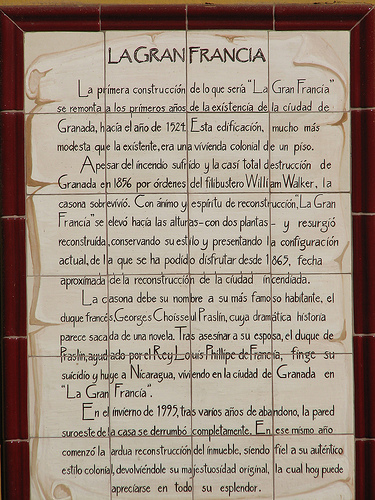 LA GRAN FRANCIA
La primera construcción de lo que sería "La Gran Francia"
se remonta a los primeros años de la existencia de la ciudad de
Granada, hacía el año de 1524. Esta edificación, mucho más
modesta que la existente, era una vivienda colonial de un piso.
Apesar del incendio sufrido y la casi total destrucción de
Granada en 1856 por órdenes del filibustero William Walker, la
casona sobrevivió. Con ánimo y espíritu de reconstrucción,"La Gran
Francia" se elevó hacía las alturas-con dos plantas- y resurgió
reconstruída, conservando su estilo y presentando la configuración
actual, de la que se ha podido disfrutar desde 1865, fecha
aproximada de la reconstrucción de la ciudad incendiada.
La casona debe su nombre a su más famoso habitante, el
duque francés, Georges Choisseul Praslin, cuya dramática historia
parece sacada de una novela. Tras asesinar a su esposa, el duque de
Praslin, ayudado por el Rey Louis Phillipe de Francia, finge su
suicidio y huye a Nicaragua, viviendo en la ciudad de Granada en
"La Gran Francia".
En el invierno de 1995, tras varios años de abandono, la pared
suroeste de la casa se derrumbó completamente. En ese mismo año
comenzó la ardua reconstrucción del inmueble, siendo fiel a su auténtico
estilo colonial, devolviéndole su majestuosidad original, la cual hoy puede
apreciarse en todo su esplendor.